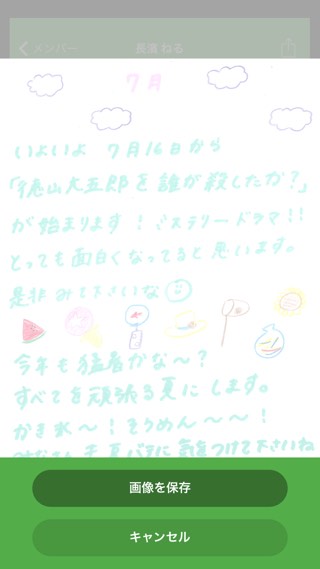 メンバー
長濱 ねる
7月
いよいよ 7月16日から
「徳山大五郎を誰が殺したか?」
が始まります!ミステリードラマ!!
とっても面白くなってると思います。
是非みて下さいな
今年も猛暑かな〜?
すべてを頑張る夏にします。
かき氷〜!そうめん〜〜!
夏バテに気をつけて下さいね
画像を保存
キャンセル